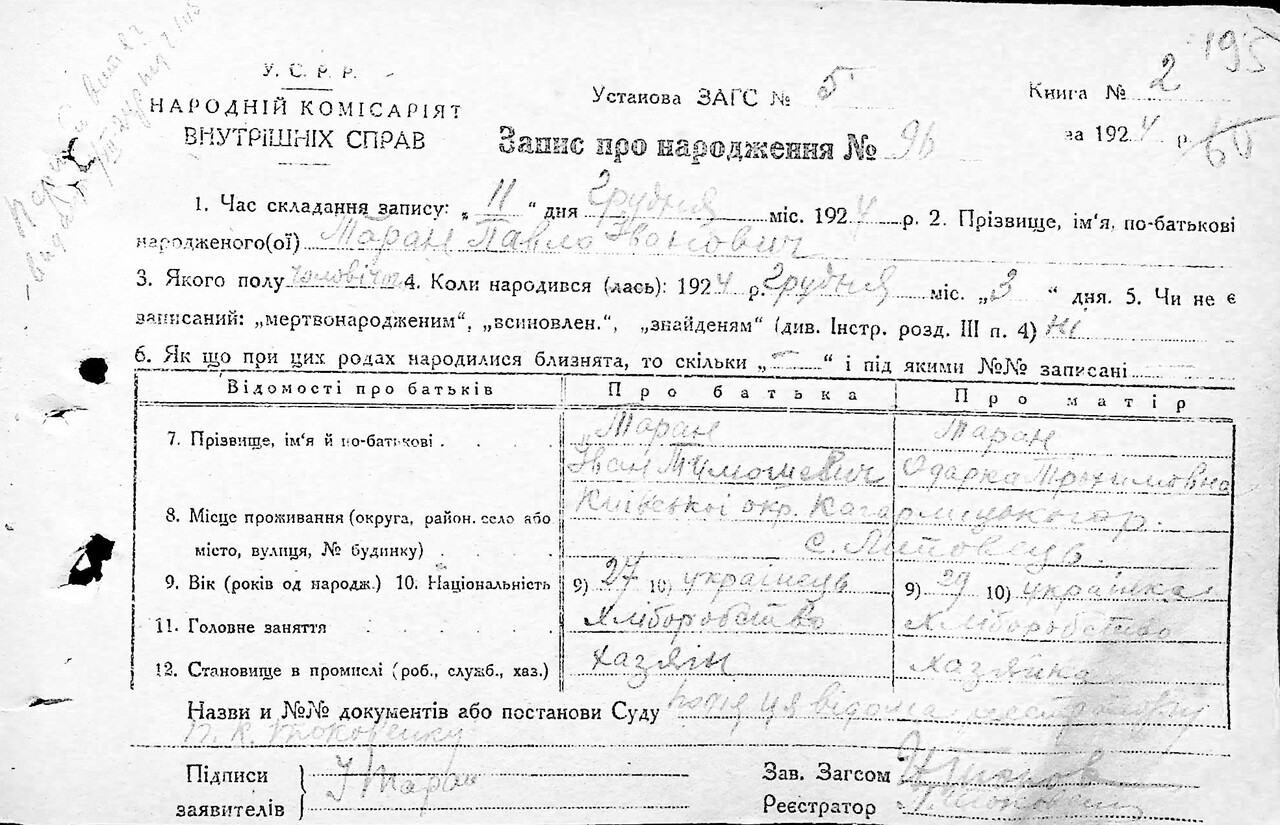 2 195
У. С. Р. Р.
НАРОДНІЙ КОМІСАРІЯТ
ВНУТРІШНІХ СПРАВ
Установа ЗАГС № 5
Книга № 2
за 1924 р. 60
Запис про народження № 96
1. Час складання запису: „ 11 “ дня Грудня міс. 1924 р. 2. Прізвище, ім‘я, по-батькові
народженого(ої) Таран Павло Іванович
3. Якого полу чоловічог 4. Коли народився (лась): 1924 р. Грудня міс. „ 3 “ дня. 5. Чи не є
записаний: „мертвонародженим“, „всиновлен.“, „знайденям“ (див. Інстр. розд. III п. 4) Ні
6. Як що при цих родах народилися близнята, то скільки „ — “ і під якими №№ записані
Відомості про батьків Про батька Про матір
7. Прізвище, ім‘я й по-батькові . . . Таран Таран
Іван Тимошевич Одарка Трохимовна
8. Місце проживання (округа, район. село або Київської окр. Кагарлицького р.
місто, вулиця, № будинку) . . . с. Липовець
9. Вік (років од народж.) 10. Національність 9) 27 10) українець 9) 29 10) українка
11. Головне заняття . . . . Хліборобство Хліборобство
12. Становище в промислі (роб., служб., хаз.) Хазяїн Хазяйка
Назви и №№ документів або постанови Суду подія ця відома реєстратору
П. К. Прокопенку
Підписи
заявителів
І Таран
Зав. Загсом
Реєстратор